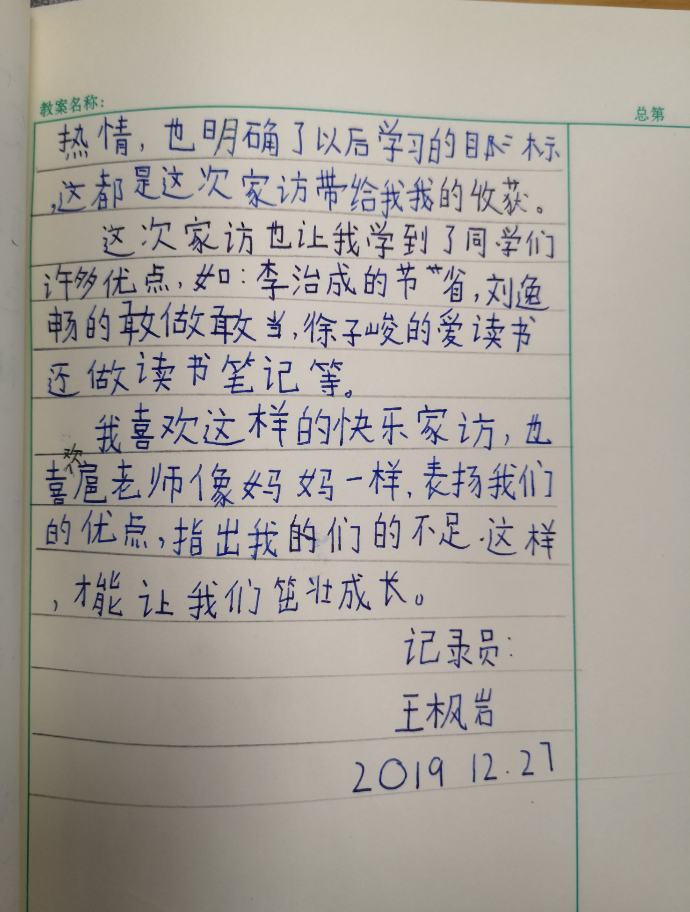 教案名称： 总第
热情，也明确了以后学习的目际标
，这都是这次家访带给我我的收获。
这次家访也让我学到了同学们
许多优点，如：李治成的节省，刘逸
畅的敢做敢当，徐子峻的爱读书
还做读书笔记等。
我喜欢这样的快乐家访，也
喜欢扈老师像妈妈一样，表扬我们
的优点，指出我的们的不足.这样
，才能让我们茁壮成长。
记录员：
王枫岩
2019 12.27